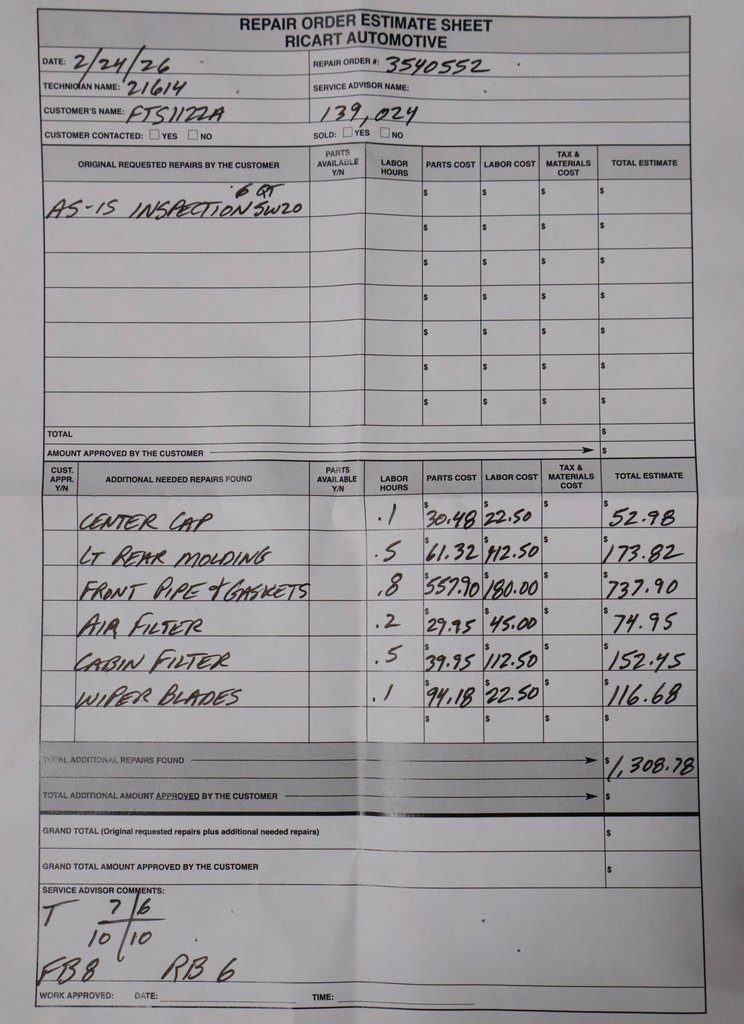 REPAIR ORDER ESTIMATE SHEET
RICART AUTOMOTIVE
DATE: 2/24/26 REPAIR ORDER #: 3540552
TECHNICIAN NAME: 21614 SERVICE ADVISOR NAME:
CUSTOMER'S NAME: FTS1122A 139,024
CUSTOMER CONTACTED: YES NO SOLD: YES NO
ORIGINAL REQUESTED REPAIRS BY THE CUSTOMER PARTS AVAILABLE Y/N LABOR HOURS PARTS COST LABOR COST TAX & MATERIALS COST TOTAL ESTIMATE
6 QT $ $ $ $
AS-IS INSPECTION 5W20
$ $ $ $
$ $ $ $
$ $ $ $
$ $ $ $
$ $ $ $
$ $ $ $
TOTAL $
AMOUNT APPROVED BY THE CUSTOMER $
CUST. APPR. Y/N ADDITIONAL NEEDED REPAIRS FOUND PARTS AVAILABLE Y/N LABOR HOURS PARTS COST LABOR COST TAX & MATERIALS COST TOTAL ESTIMATE
CENTER CAP .1 $30.48 $22.50 $ $52.98
LT REAR MOLDING .5 $61.32 $112.50 $ $173.82
FRONT PIPE & GASKETS .8 $557.90 $180.00 $ $737.90
AIR FILTER .2 $29.95 $45.00 $ $74.95
CABIN FILTER .5 $39.95 $112.50 $ $152.45
WIPER BLADES .1 $94.18 $22.50 $ $116.68
$ $ $ $
TOTAL ADDITIONAL REPAIRS FOUND $1,308.78
TOTAL ADDITIONAL AMOUNT APPROVED BY THE CUSTOMER $
GRAND TOTAL (Original requested repairs plus additional needed repairs) $
GRAND TOTAL AMOUNT APPROVED BY THE CUSTOMER $
SERVICE ADVISOR COMMENTS:
T 7/6
10/10
FB8 RB 6
WORK APPROVED: DATE: TIME: